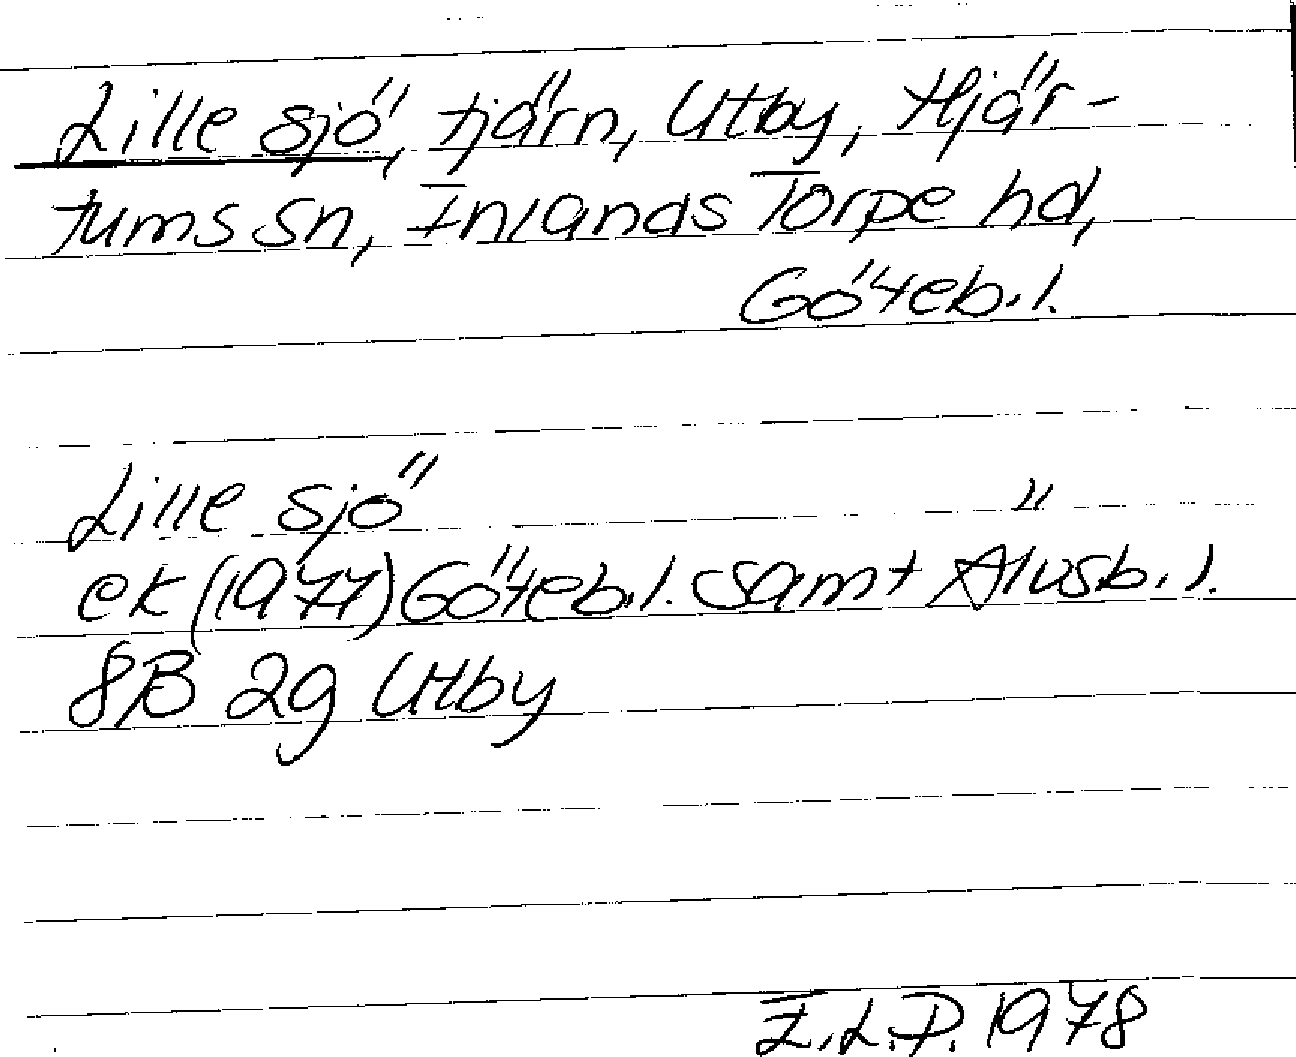 Lille sjö, tjärn, Utby, Hjär-
tums sn, Inlands Torpe hd,
Göteb.l.
Lille sjö
ek (1977) Göteb.l. samt Älvsb.l.
8B 2g Utby
I.L.P. 1978